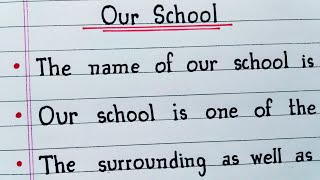 Our School
• The name of our school is
• Our school is one of the
• The surrounding as well as